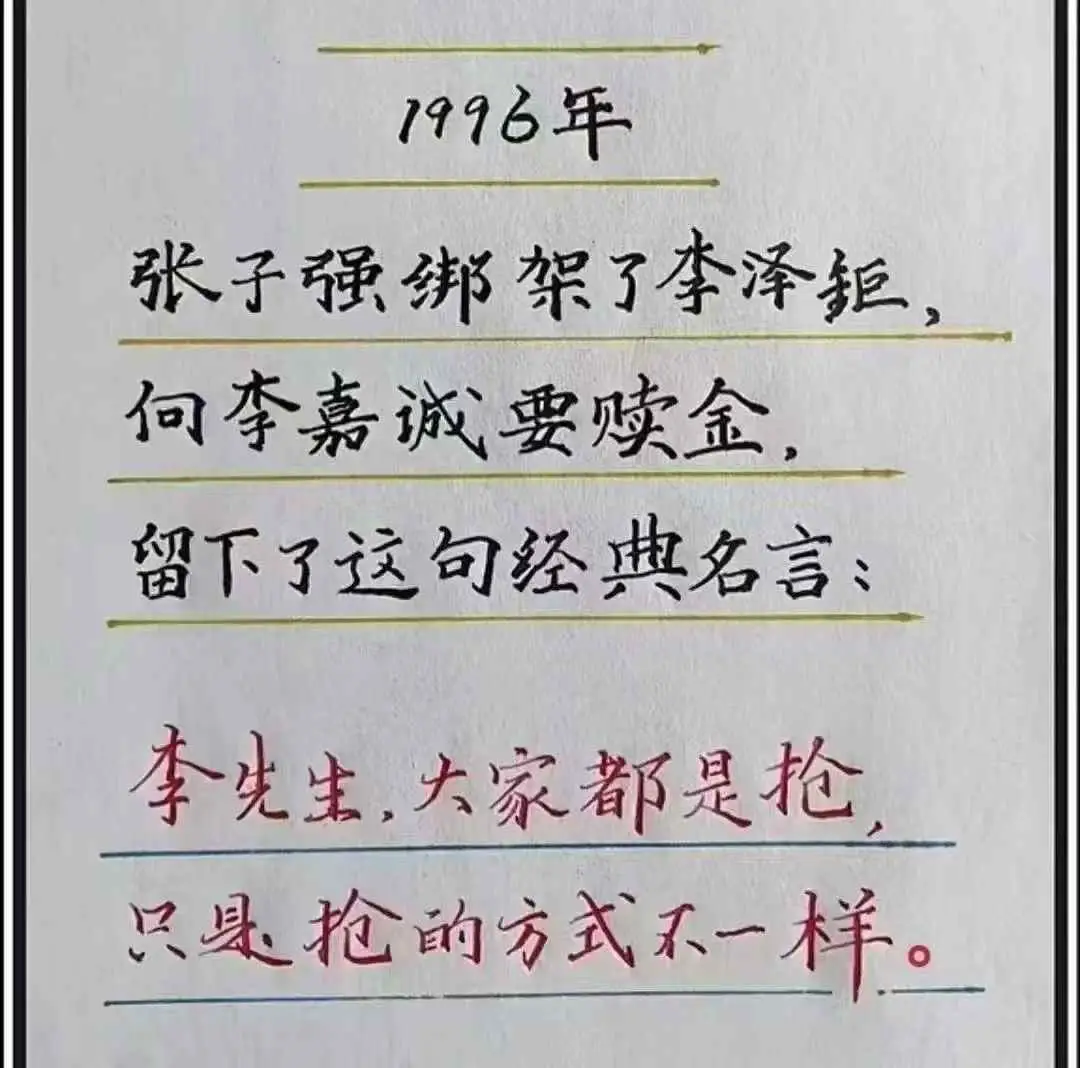 1996年
张子强绑架了李泽鉅,
向李嘉诚要赎金,
留下了这句经典名言:
李先生,大家都是抢,
只是抢的方式不一样。